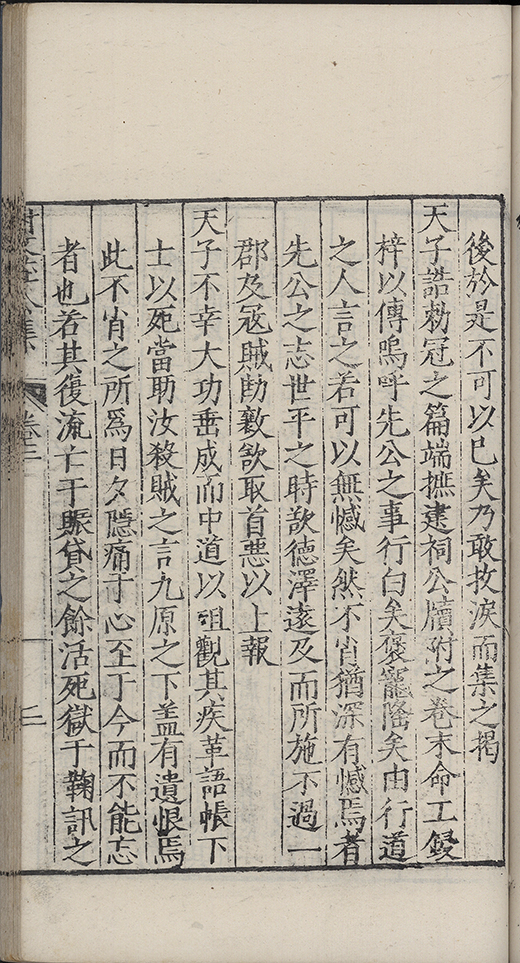 後於是不可以巳矣乃敢抆淚而集之揭
天子誥勑冠之篇端摭建祠公牘附之卷末命工鋟
梓以傳嗚呼先公之事行白矣褒寵隆矣由行道
之人言之若可以無憾矣然不肖猶深有憾焉者
先公之志世平之時欲德澤遠及而所施不過一
郡及寇賊勛敷欲取首惡以上報
天子不幸大功垂成而中道以殂觀其疾革語帳下
士以死當助汝殺賊之言九原之下盖有遺恨焉
此不肖之所爲日夕隱痛于心至于今而不能忘
者也若其復流亡于賑貸之餘活死獄于鞠訊之
集 卷三 二